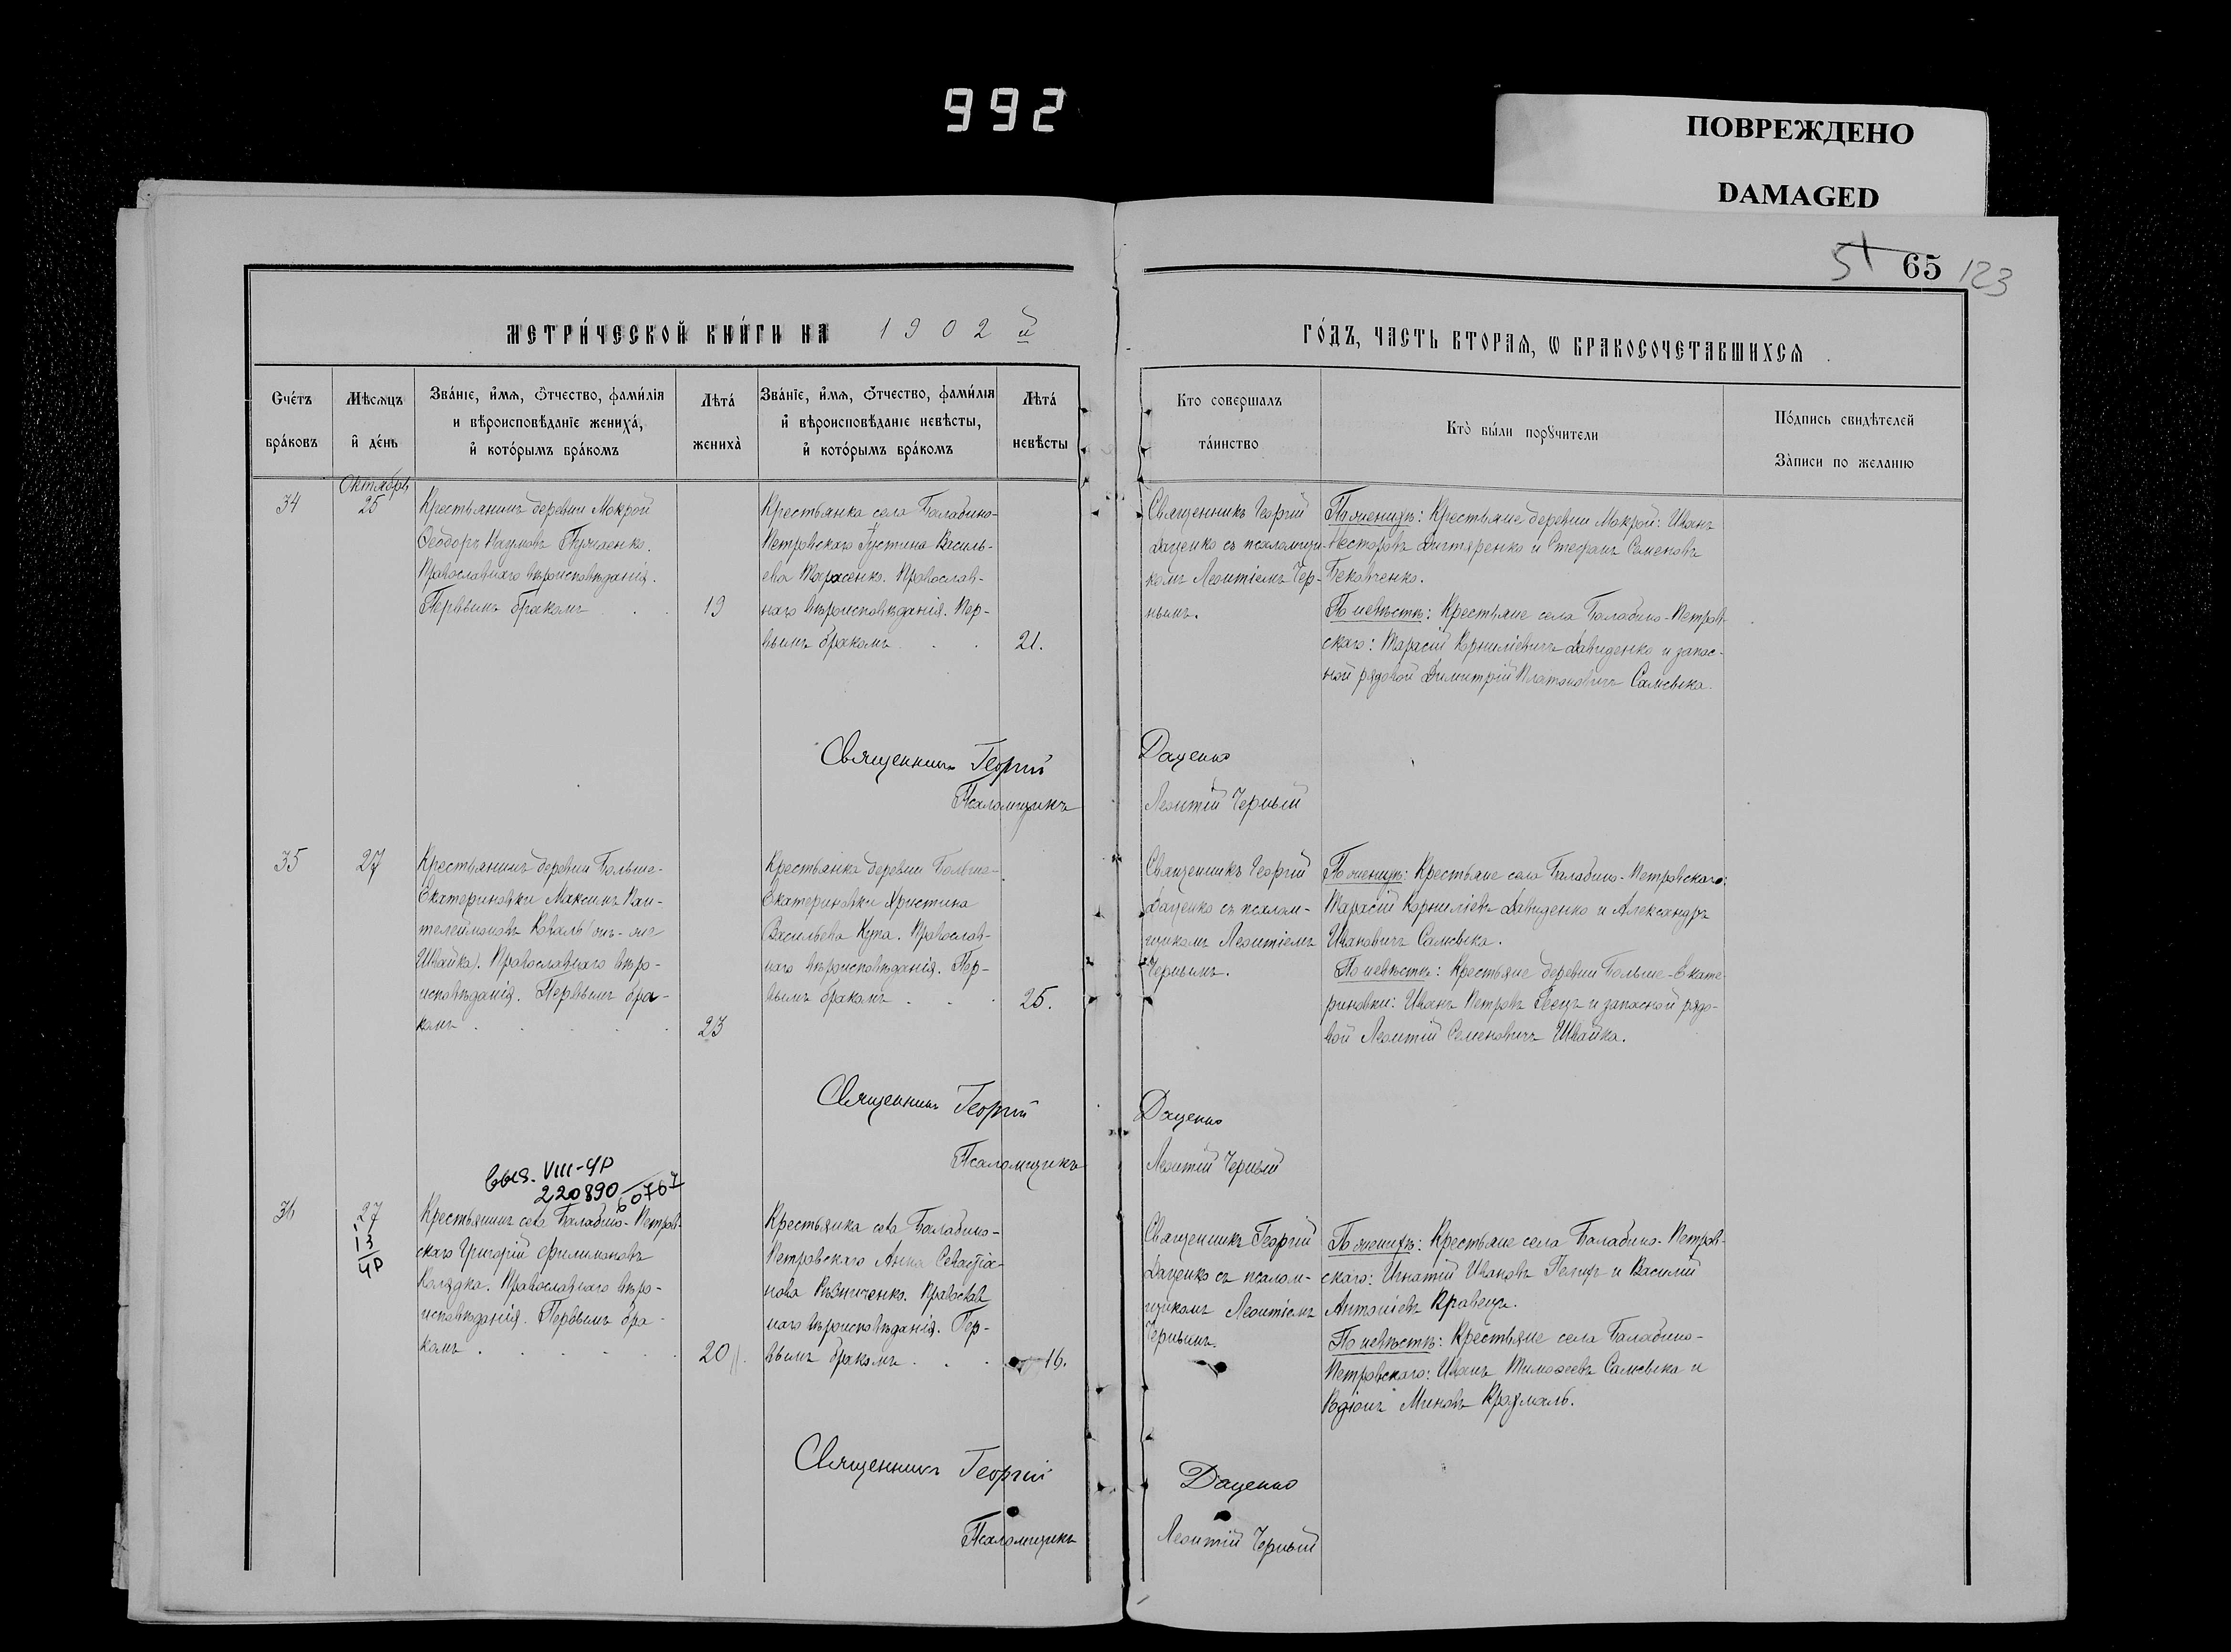 992
ПОВРЕЖДЕНО
DAMAGED
51 65 123
МЕТРИ́ЧЕСКОЙ КНИ́ГИ НА 1902 й
ГО́ДЪ, ЧАСТЬ ВТОРАѦ, Ѡ БРАКОСОЧЕТАВШИХСѦ
Счетъ браковъ
Мѣсѧцъ и день
Званіе, имѧ, отчество, фамилія и вѣроисповѣданіе жениха, и которымъ бракомъ
Лѣта жениха
Званіе, имѧ, отчество, фамилія и вѣроисповѣданіе невѣсты, и которымъ бракомъ
Лѣта невѣсты
Кто совершалъ таинство
Кто были порꙋчители
Подпись свидѣтелей Записи по желанію
34
Октябрь
25
Крестьянинъ деревни Мокрой
Ѳеодоръ Наумовъ
Православнаго вѣроисповѣданія.
Первымъ бракомъ
19
Крестьянка села Балабино-
Петровскаго Іустина Василь-
ева Тарасенко. Православ-
наго вѣроисповѣданія. Пер-
вымъ бракомъ
21.
Священникъ Георгій
Даценко съ псаломщи-
комъ Леонтіемъ Чер-
нымъ.
По женихѣ: Крестьяне деревни Мокрой: Иванъ
Несторовъ Дигтяренко и Стефанъ Семеновъ
Бековченко.
По невѣстѣ: Крестьяне села Балабино-Петров-
скаго: Тарасій Корниліевичъ Давиденко и запас-
ной рядовой Димитрій Платоновичъ Самсыка.
Священникъ Георгій Даценко
Псаломщикъ Леонтій Черный
35
27
Крестьянинъ деревни Больше-
Екатериновки Максимъ Пан-
телеймоновъ Коваль (онъ-же
Швайка). Православнаго вѣро-
исповѣданія. Первымъ бра-
комъ
23
Крестьянка деревни Больше-
Екатериновки Христина
Васильева Купа. Православ-
наго вѣроисповѣданія. Пер-
вымъ бракомъ
25.
Священникъ Георгій
Даценко съ псалом-
щикомъ Леонтіемъ
Чернымъ.
По женихѣ: Крестьяне села Балабино-Петровскаго:
Тарасій Корниліевъ Давиденко и Александръ
Ивановичъ Самсыка.
По невѣстѣ: Крестьяне деревни Больше-Екате-
риновки: Иванъ Петровъ и запасной рядо-
вой Леонтій Семеновичъ Швайка.
Священникъ Георгій Даценко
Псаломщикъ Леонтій Черный
VIII-ЧР
220890
60767
36
27
13
ЧР
Крестьянинъ села Балабино-Петров-
скаго Григорій Филимоновъ
Колядка. Православнаго вѣро-
исповѣданія. Первымъ бра-
комъ
20
Крестьянка села Балабино-
Петровскаго Анна Севастіа-
нова Рѣзниченко. Православ
наго вѣроисповѣданія. Пер-
вымъ бракомъ
16.
Священникъ Георгій
Даценко съ псалом-
щикомъ Леонтіемъ
Чернымъ.
По женихѣ: Крестьяне села Балабино-Петров-
скаго: Игнатій Ивановъ и Василій
Антоніевъ Кравецъ.
По невѣстѣ: Крестьяне села Балабино-
Петровскаго: Иванъ Тимоѳеевъ Самсыка и
Родіонъ Миновъ Крохмаль.
Священникъ Георгій Даценко
Псаломщикъ Леонтій Черный